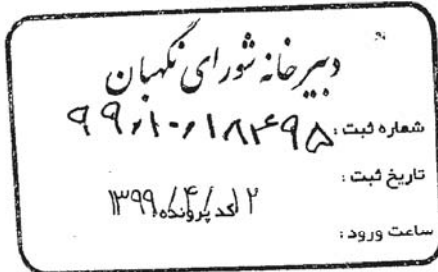 دبیرخانه شورای نگهبان
شماره ثبت: ۹۹/۱۰۶/۱۸۴۹۵
تاریخ ثبت:
۱۳۹۹/۴/۱۲
کد پرونده
ساعت ورود: